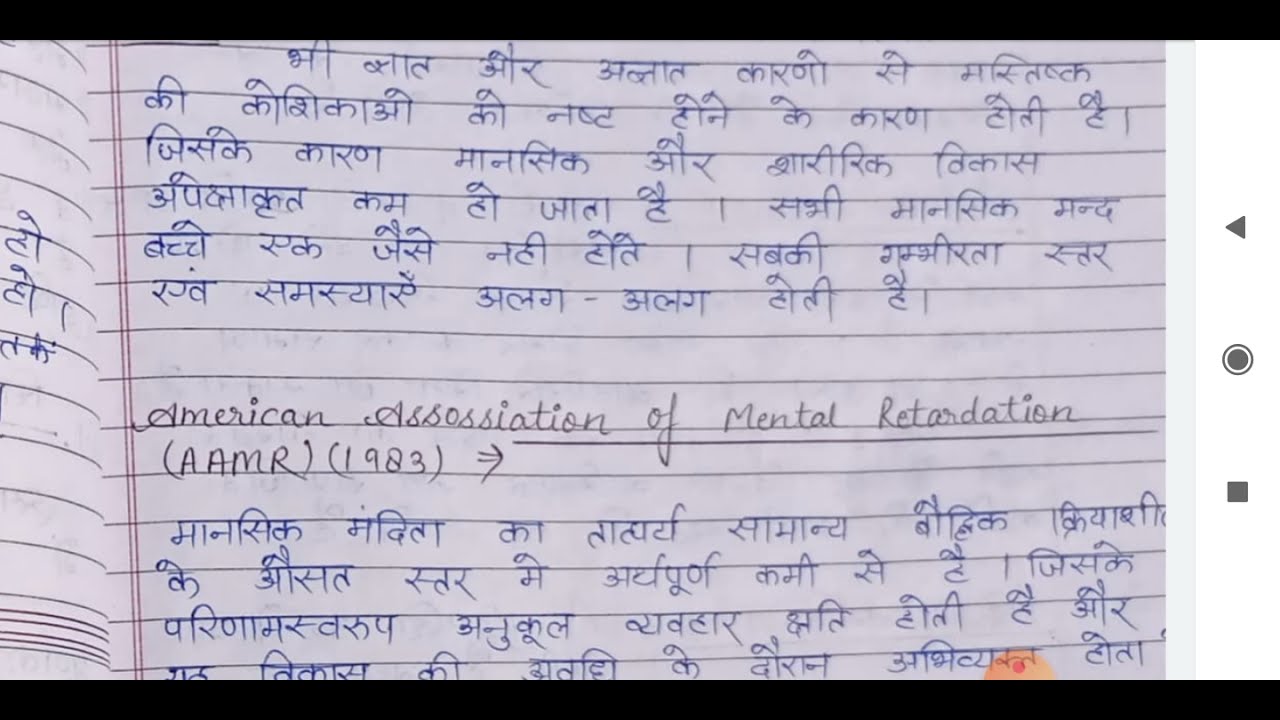 हो
हो।
तक
भी ज्ञात और अज्ञात कारणो से मस्तिष्क
की कोशिकाओ को नष्ट होने के कारण होती है।
जिसके कारण मानसिक और शारीरिक विकास
अपेक्षाकृत कम हो जाता है । सभी मानसिक मन्द
बच्चे एक जैसे नही होते । सबकी गम्भीरता स्तर
एवं समस्याएँ अलग - अलग होती है।
American Assossiation of Mental Retardation
(AAMR) (1983) ⇒
मानसिक मंदिता का तात्पर्य सामान्य बौद्धिक क्रियाशील
के औसत स्तर मे अर्थपूर्ण कमी से है । जिसके
परिणामस्वरुप अनुकूल व्यवहार क्षति होती है और
यह विकास की अवधि के दौरान अभिव्यक्त होता